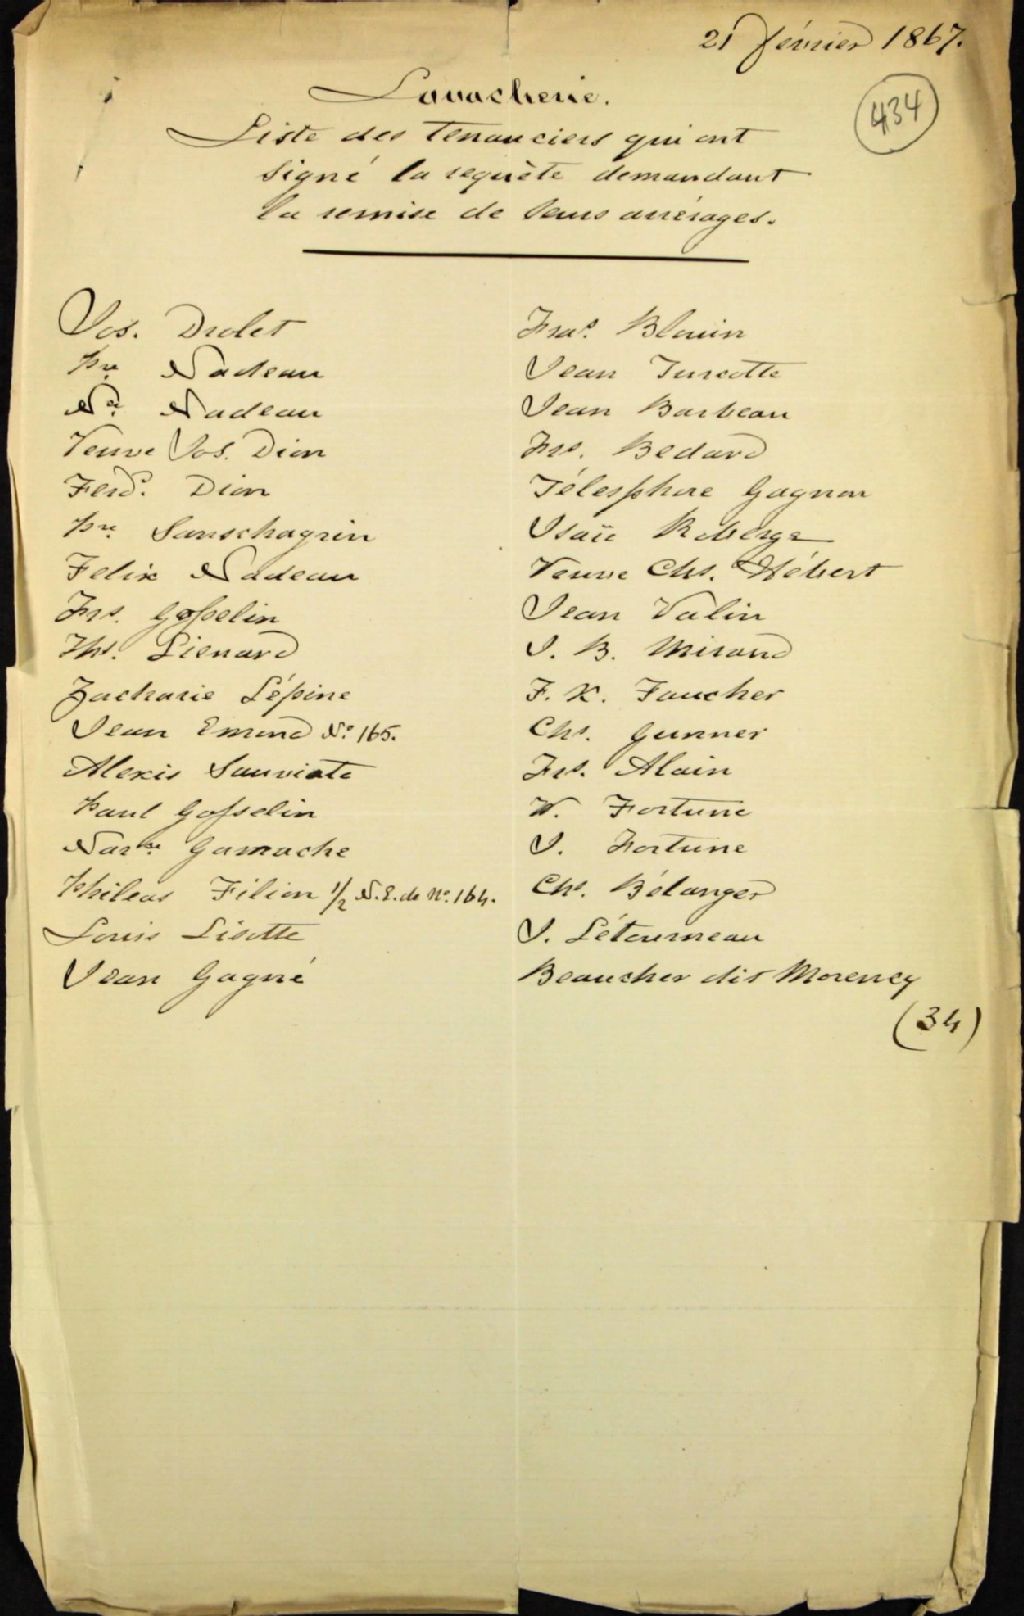 21 février 1867.
434
Lavacherie.
Liste des Tenanciers qui ont
signé la requète demandant
la remise de leurs arrérages.
Jos. Drolet
Pre Nadeau
Nre Nadeau
Veuve Jos. Dion
Ferd. Dion
Pre Sanschagrin
Felix Nadeau
Frs. Gosselin
Ths. Lienard
Zacharie Lépine
Jean Emond No. 165.
Alexis Sauviate
Paul Gosselin
Narsse Gamache
Phileas Filion 1/2 N.E. de No. 164.
Louis Lisotte
Jean Gagné
Fras. Blouin
Jean Turcotte
Jean Barbeau
Frs. Bedard
Télesphore Gagnon
Isaïe Roberge
Veuve Chs. Hébert
Jean Valin
J. B. Mirand
F. X. Faucher
Chs. Gunner
Frs. Alain
W. Fortune
J. Fortune
Chs. Bélanger
J. Létourneau
Beaucher dit Morency
(34)